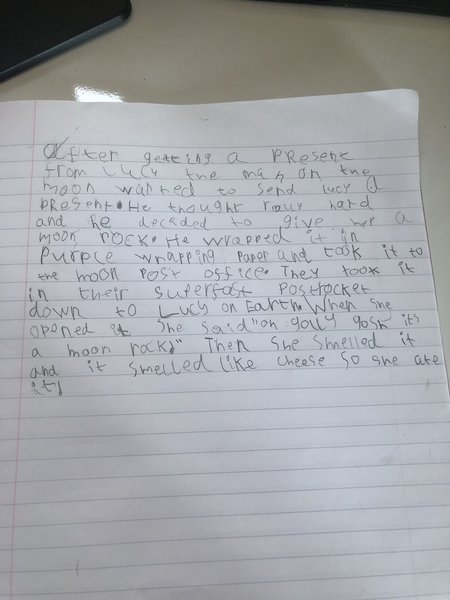 after getting a PResent
from Lucy the man on the
moon wanted to send lucy a
PResent. He thought really hard
and he decaded to give her a
moon rock. He wrapped it in
Purple wrapping Paper and took it to
the moon Post office. They took it
in their superfast Postrocket
down to Lucy on Earth. When she
opened it She said "oh golly gosh its
a moon rock!" Then she smelled it
and it smelled like cheese so she ate
it!